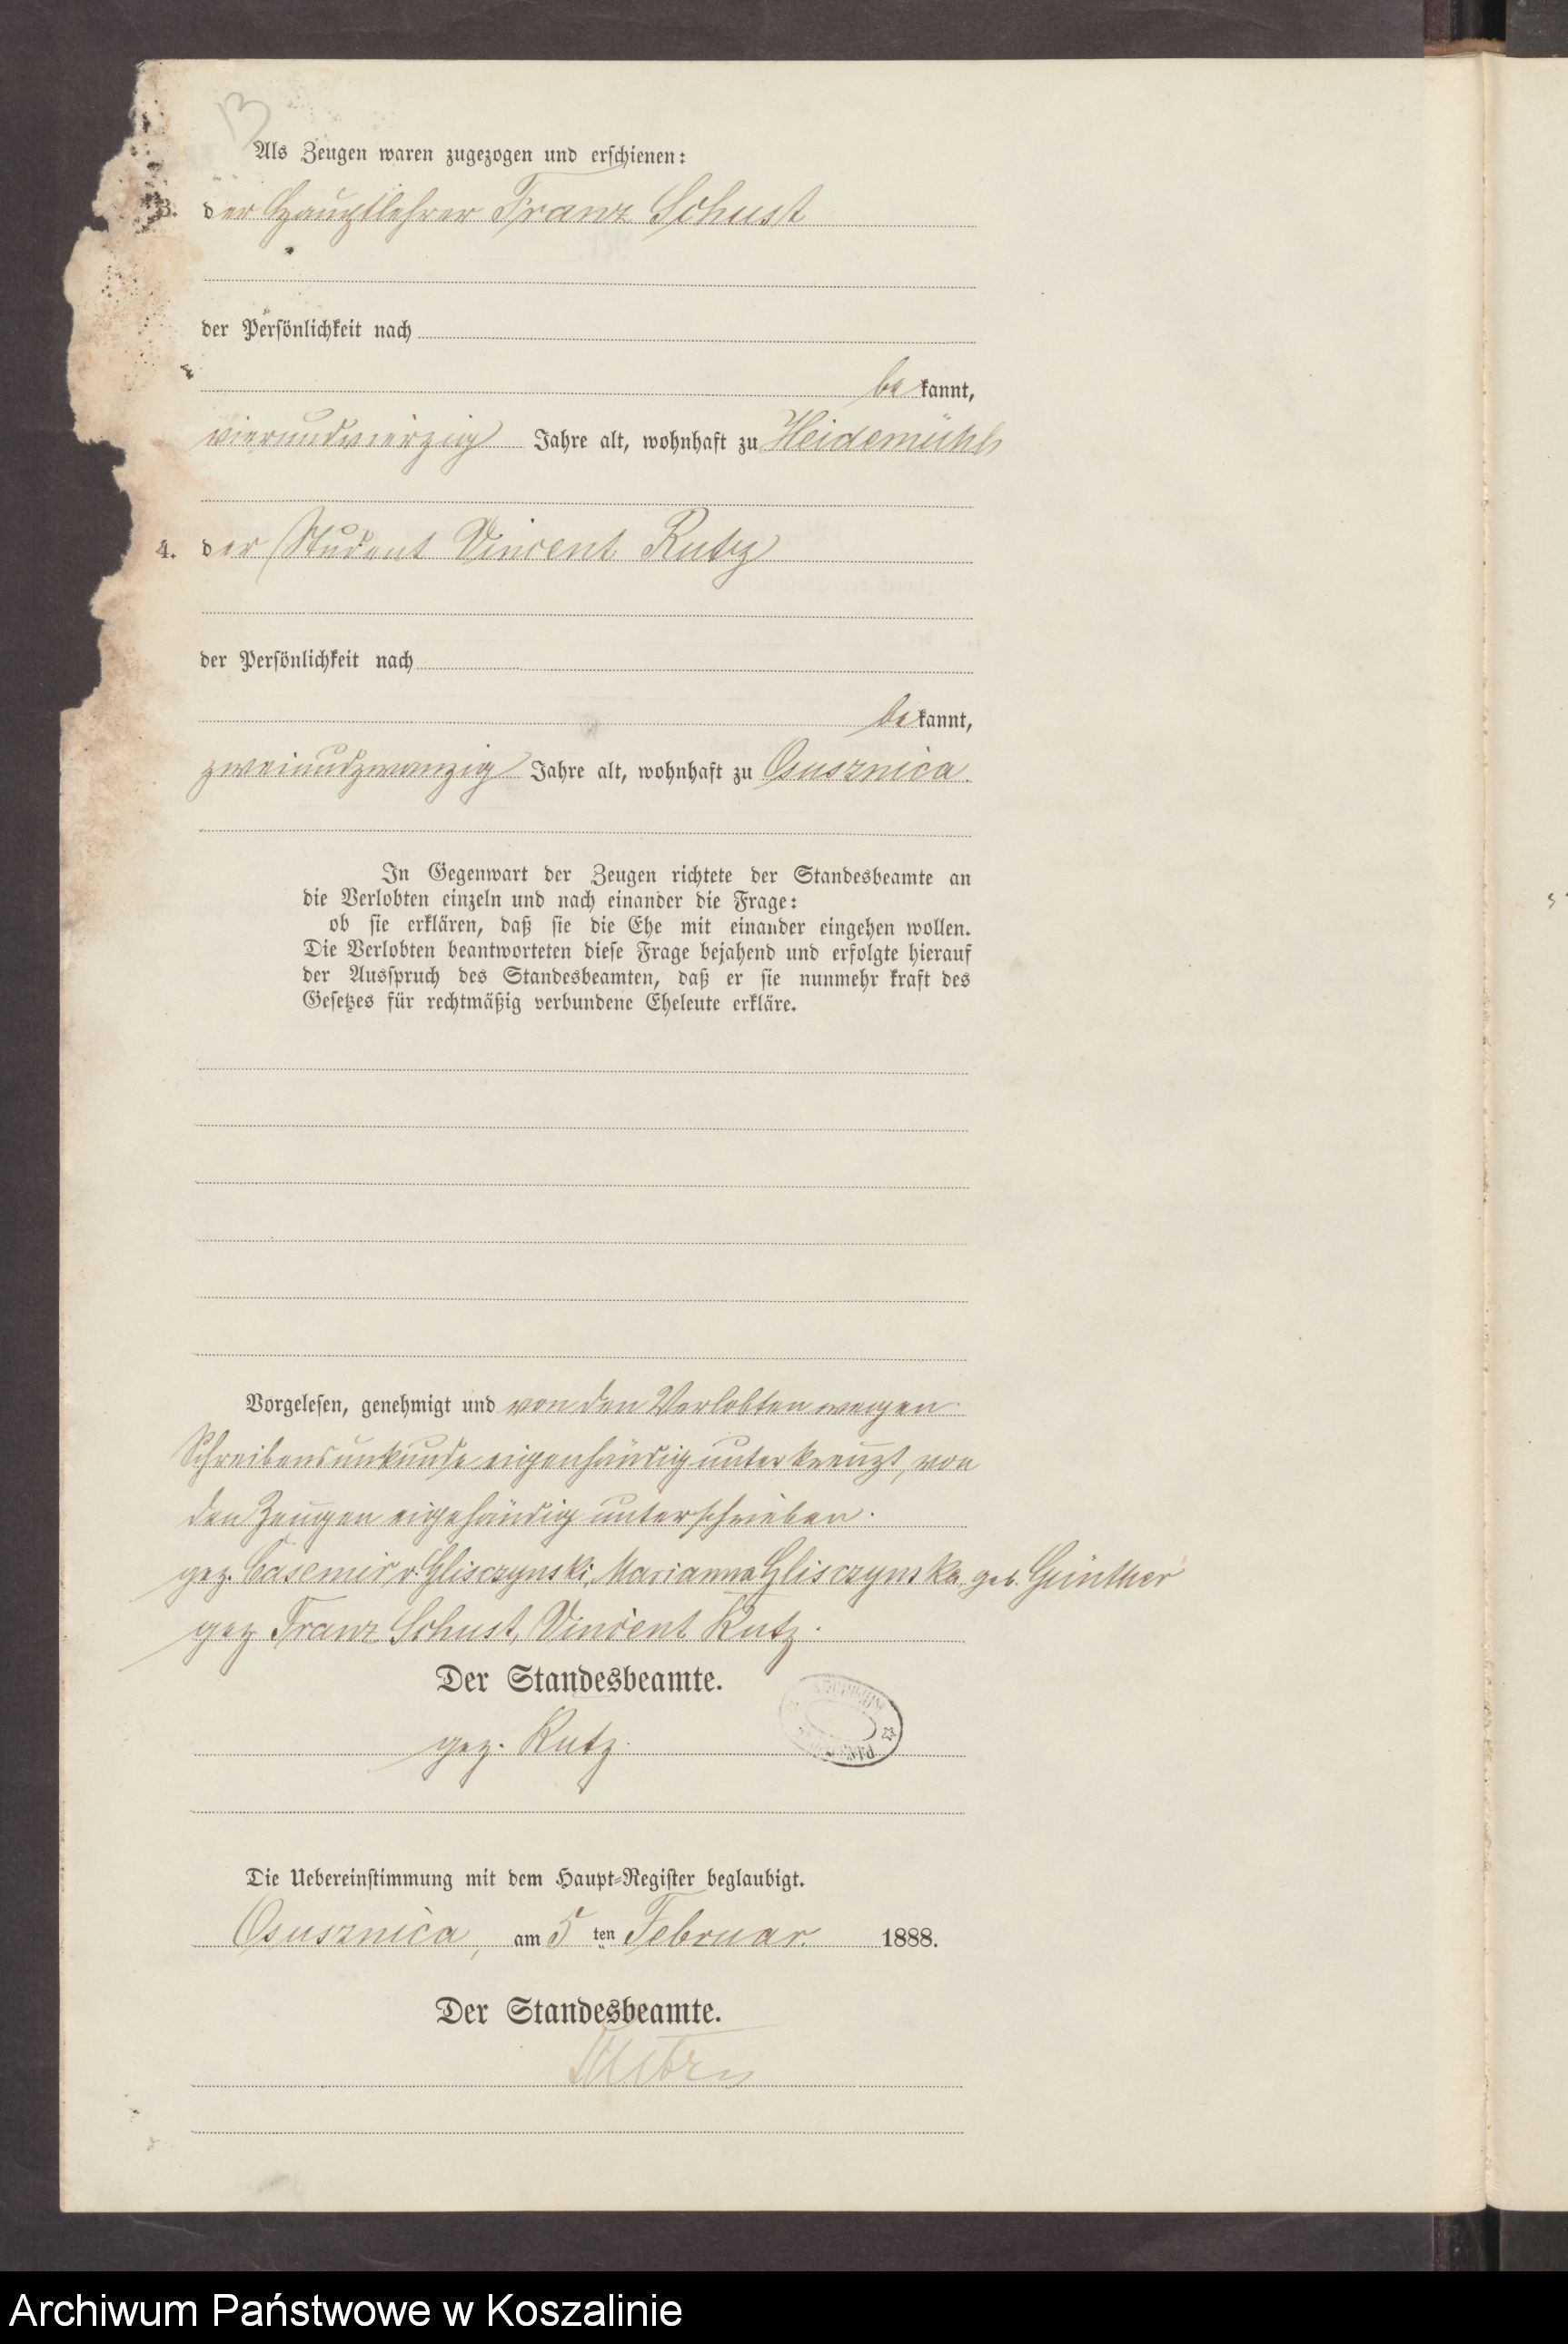 13
Als Zeugen waren zugezogen und erschienen:
3. der Hauptlehrer Franz Schust
der Persönlichkeit nach
bekannt,
vierundvierzig Jahre alt, wohnhaft zu Heidemühl
4. der Student Vincent Rutz
der Persönlichkeit nach
bekannt,
zweiundzwanzig Jahre alt, wohnhaft zu Osusznica.
In Gegenwart der Zeugen richtete der Standesbeamte an
die Verlobten einzeln und nach einander die Frage:
ob sie erklären, daß sie die Ehe mit einander eingehen wollen.
Die Verlobten beantworteten diese Frage bejahend und erfolgte hierauf
der Ausspruch des Standesbeamten, daß er sie nunmehr kraft des
Gesetzes für rechtmäßig verbundene Eheleute erkläre.
Vorgelesen, genehmigt und von den Verlobten wegen
Schreibensunkunde eigenhändig unterkreuzt, von
den Zeugen eigehändig unterschrieben.
gez. Casemir v. Glisczynski, Marianna Glisczynska, geb. Günther
gez Franz Schust, Vincent Rutz.
Der Standesbeamte.
gez. Rutz.
Die Uebereinstimmung mit dem Haupt-Register beglaubigt.
Osusznica, am 5 ten Februar. 1888.
Der Standesbeamte.
Archiwum Państwowe w Koszalinie